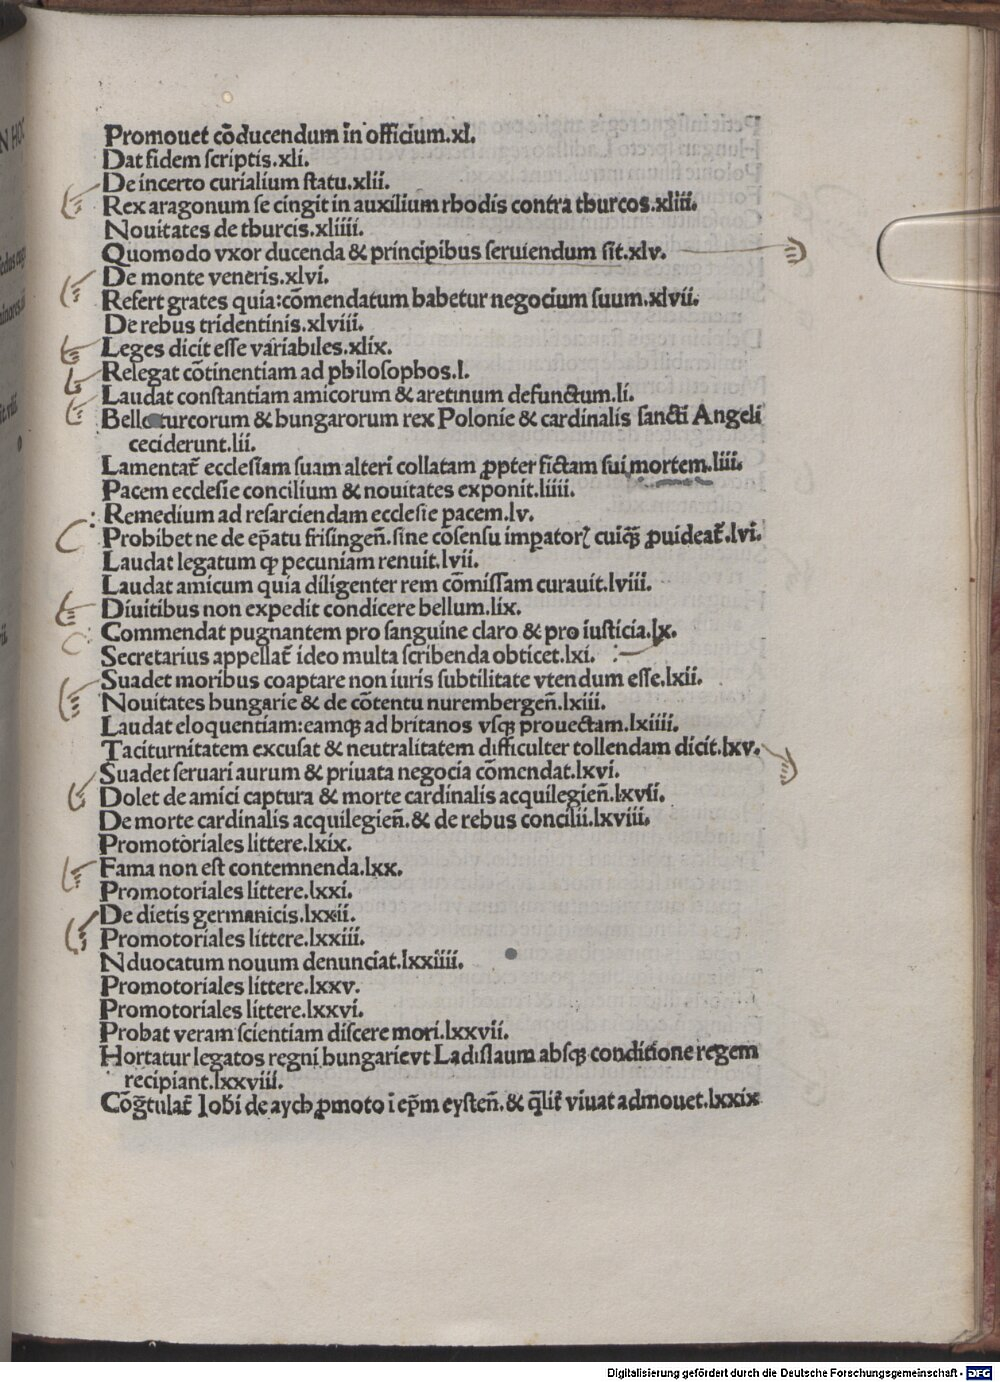 Promouet cōducendum in officium.xl.
Dat fidem scriptis.xli.
De incerto curialium statu.xlii.
Rex aragonum se cingit in auxilium rhodis contra thurcos.xliii.
Nouitates de thurcis.xliiii.
Quomodo vxor ducenda & principibus seruiendum sit.xlv.
De monte veneris.xlvi.
Refert grates quia:cōmendatum habetur negocium suum.xlvii.
De rebus tridentinis.xlviii.
Leges dicit esse variabiles.xlix.
Relegat cōtinentiam ad philosophos.l.
Laudat constantiam amicorum & aretinum defunctum.li.
Bello turcorum & hungarorum rex Polonie & cardinalis sancti Angeli
ceciderunt.lii.
Lamentat̄ ecclesiam suam alteri collatam ꝓpter fictam sui mortem.liii.
Pacem ecclesie concilium & nouitates exponit.liiii.
Remedium ad resarciendam ecclesie pacem.lv.
Prohibet ne de ep̄atu frisingen̄.sine cōsensu imꝑatorꝭ cuiqꝫ ꝓuideat̄.lvi.
Laudat legatum ꝙ pecuniam renuit.lvii.
Laudat amicum quia diligenter rem cōmissam curauit.lviii.
Diuitibus non expedit condicere bellum.lix.
Commendat pugnantem pro sanguine claro & pro iusticia.lx.
Secretarius appellat̄ ideo multa scribenda obticet.lxi.
Suadet moribus coaptare non iuris subtilitate vtendum esse.lxii.
Nouitates hungarie & de cōtentu nurembergen̄.lxiii.
Laudat eloquentiam:eamqꝫ ad britanos vsqꝫ prouectam.lxiiii.
Taciturnitatem excusat & neutralitatem difficulter tollendam dicit.lxv.
Suadet seruari aurum & priuata negocia cōmendat.lxvi.
Dolet de amici captura & morte cardinalis acquilegien̄.lxvii.
De morte cardinalis acquilegien̄.& de rebus concilii.lxviii.
Promotoriales littere.lxix.
Fama non est contemnenda.lxx.
Promotoriales littere.lxxi.
De dietis germanicis.lxxii.
Promotoriales littere.lxxiii.
Nduocatum nouum denunciat.lxxiiii.
Promotoriales littere.lxxv.
Promotoriales littere.lxxvi.
Probat veram scientiam discere mori.lxxvii.
Hortatur legatos regni hungarievt Ladislaum absqꝫ conditione regem
recipiant.lxxviii.
Cōg̃tulat̄ Iohi de aych ꝓmoto i ep̄m eysten̄.& q̄lit̄ viuat admouet.lxxix
Digitalisierung gefördert durch die Deutsche Forschungsgemeinschaft - DFG